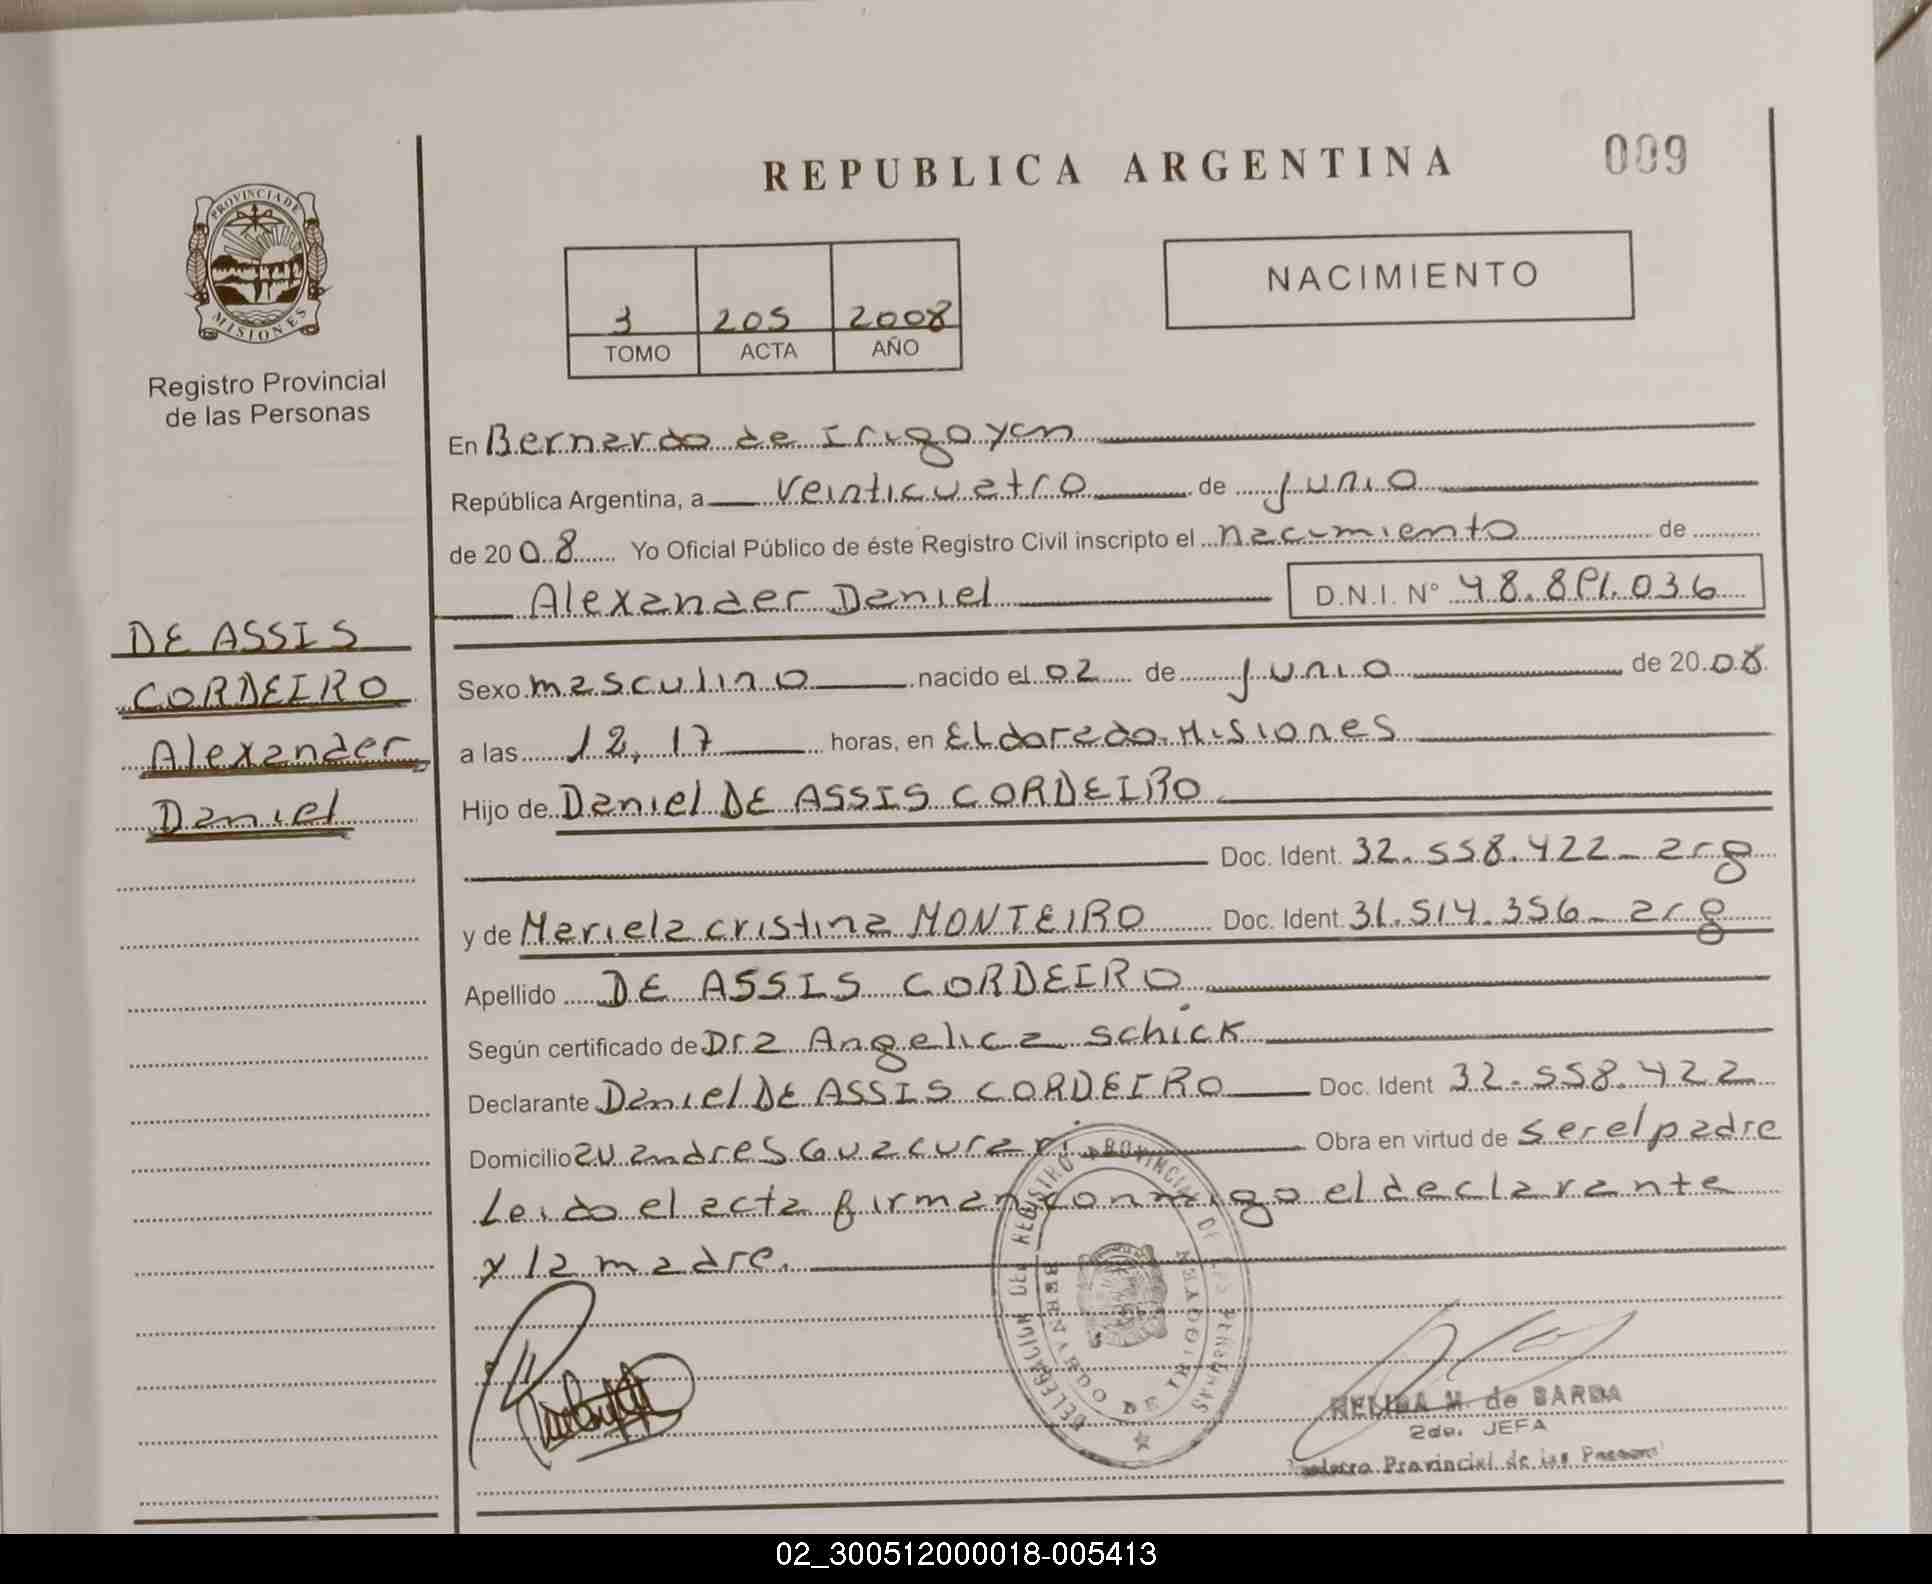 REPUBLICA ARGENTINA
009
PROVINCIA DE
MISIONES
Registro Provincial
de las Personas
3 205 2008
TOMO ACTA AÑO
NACIMIENTO
DE ASSIS
CORDEIRO
Alexander
Daniel
En Bernardo de Irigoyen
República Argentina, a veinticuatro de junio
de 2008 Yo Oficial Público de éste Registro Civil inscripto el nacimiento de
Alexander Daniel D.N.I. Nº 48.891.036
Sexo masculino nacido el 02 de junio de 2008
a las 12,17 horas, en Eldorado Misiones
Hijo de Daniel DE ASSIS CORDEIRO
Doc. Ident. 32.558.422 - arg
y de Mariela cristina MONTEIRO Doc. Ident. 31.514.356 - arg
Apellido DE ASSIS CORDEIRO
Según certificado de Dra Angelica Schick
Declarante Daniel DE ASSIS CORDEIRO Doc. Ident 32.558.422
Domicilio av andres Guacurari Obra en virtud de ser el padre
Leido el acta firman conmigo el declarante
y la madre.
DELEGACION DEL REGISTRO PROVINCIAL DE LAS PERSONAS
BERNARDO DE IRIGOYEN
M. de BARDA
2da. JEFA
Provincial de las
02_300512000018-005413